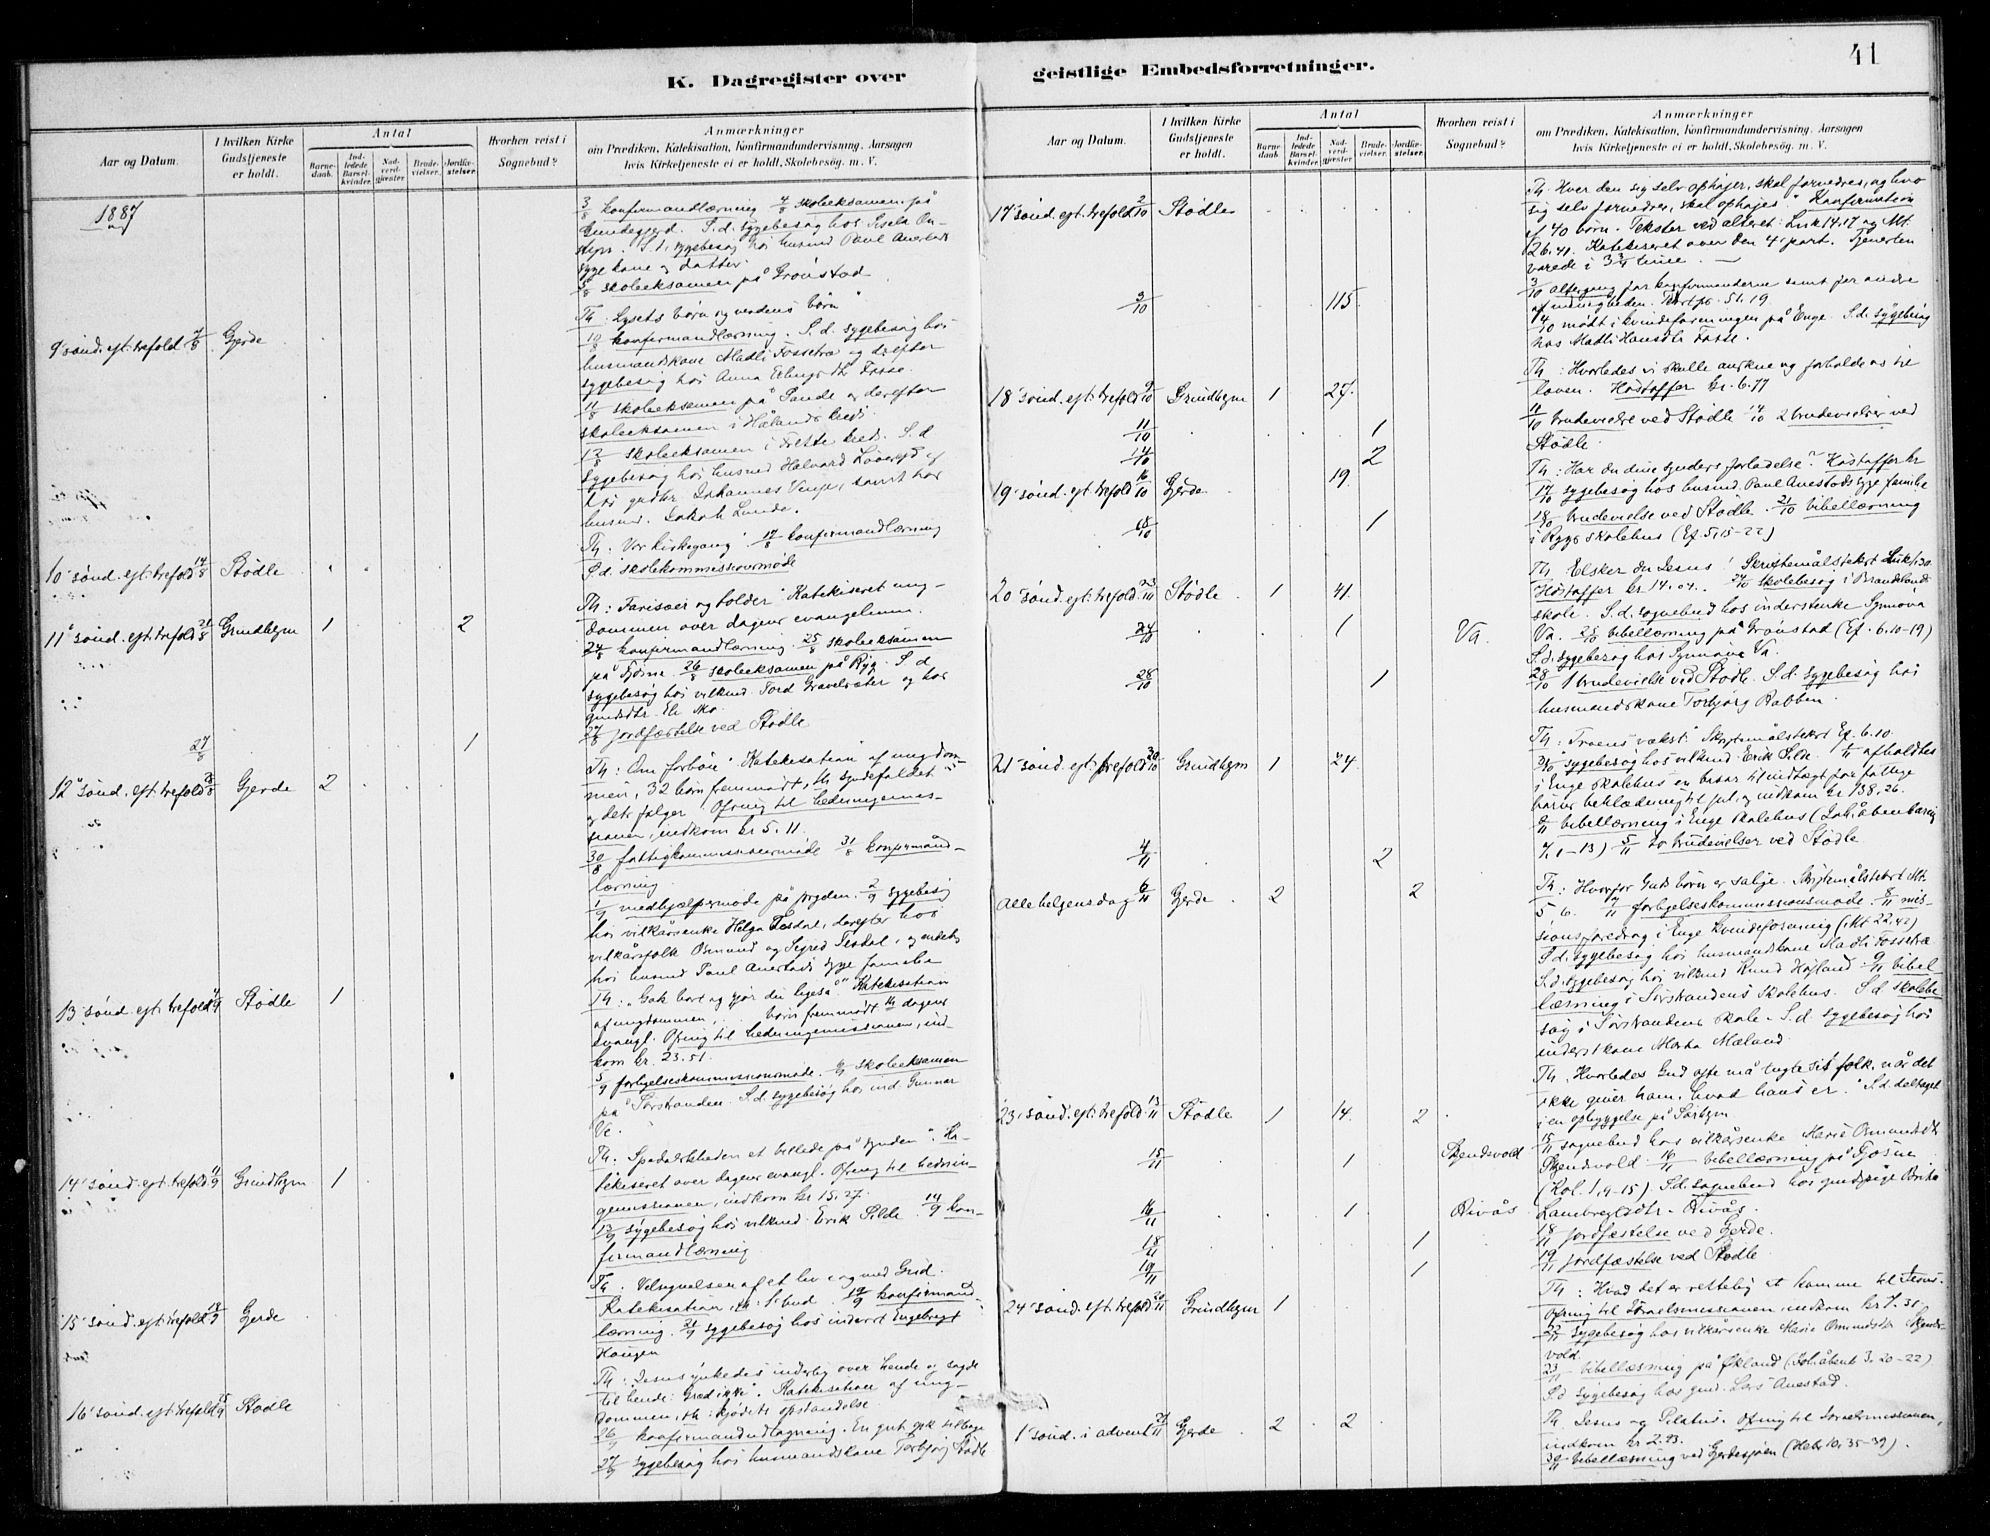 41
K. Dagregister over geistlige Embedsforretninger.
Aar og Datum.
I hvilken Kirke Gudstjeneste er holdt.
Antal
Barnedaab.
Indledede Barselkvinder.
Nadverdgjæster
Brudevielser.
Jordfæstelser.
Hvorhen reist i Sognebud?
Anmærkninger
om Prædiken, Katekisation, Konfirmandundervisning, Aarsagen
hvis Kirketjeneste ei er holdt, Skolebesøg. m. V.
1887
3/8 konfirmandlærning 4/8 skoleeksamen på
S.d. sygebesøg hos
S.d. sygebesøg hos husmd Paul Anestads
syge kone og datter.
5/8 skoleeksamen på Grønstad
9' sönd. eft. trefold. 7/8 Gjerde
Th: Lysets børn og verdens børn
10/8 konfirmandlærning. S.d. sygebesøg hos
husmandskone Madli Fossetræ og derefter
sygebesøg hos Anna Fosse.
11/8 skoleeksamen på Sande og derefter
skoleeksamen i Hålands kreds
12/8 skoleeksamen i kreds. S.d
sygebesøg hos husmd Halvard
hos gmdbr Johannes samt hos
husmd. Jakob Lunde.
10' sönd. eft. trefold. 14/8 Stødle
Th: Vor kirkegang. 17/8 konfirmandlærning
S.d. skolekommissionsmöde
11' sönd. eft. trefold 21/8 Grindhejm 1 2
Th: Farisæer og tolder. Katekiseret ung-
dommen over dagens evangelium.
24/8 konfirmandlærning. 25/8 skoleeksamen
på Fjøsne. 26/8 skoleeksamen på Ryg. S.d
sygebesøg hos vilkmd. Tord og hos
Eli Mo
27/8 1
27/8 jordfæstelse ved Stødle
12' sönd. eft. trefold 28/8 Gjerde 2
Th: Om forbön. Katekisation af ungdom-
men, 32 börn fremmødt, th syndefaldet
og dets følger. Ofring til hedningemis-
sionen, indkom kr 5.11.
30/8 fattigkommissionsmöde 31/8 konfirmand-
lærning
1/9 medhjælpermöde på 2/9 sygebesøg
hos vilkårsenke Helga Tesdal, derefter hos
vilkårsfolk Osmund og Sigrid Tesdal, og endelig
hos husmd Paul Anestads syge familie
13' sönd. eft. trefold 4/9 Stødle 1
Th: "Gak bort og gjör du ligeså" Katekisation
af ungdommen börn fremmødt, th dagens
evangl. Ofring til hedningemissionen, ind-
kom kr. 23.51.
5/9 forligelseskommissionsmöde. skoleeksamen
på Sørstranden. S.d. sygebesøg hos ind. Gunnar
Ve.
14' sönd. eft. trefold 11/9 Grindhejm 1
Th: Spedalskheden et billede på synden. Ka-
tekiseret over dagens evangl. Ofring til hednin-
gemissionen, indkom kr 15,27.
12/9 sygebesøg hos vilkmd Erik Silde. 14/9 kon-
firmandlærning
15' sönd. eft. trefold 18/9 Gjerde
Th: Velsignelsen af et liv i og med Gud.
Katekisation, th: bud. 19/9 konfirmand-
lærning. 21/9 sygebesøg hos inderst Engebregt
Haugen
16' sönd. eft. trefold 25/9 Stødle
Th: Jesus ynkedes inderlig over hende og sagde
til hende: Græd ikke. Katekisation af ung-
dommen, th: kjødets opstandelse
26/9 konfirmandudtagning. En gut gik tilbage
27/9 sygebesøg hos husmandskone Torbjør Stødle
Aar og Datum.
I hvilken Kirke Gudstjeneste er holdt.
Antal
Barnedaab.
Indledede Barselkvinder.
Nadverdgjæster
Brudevielser.
Jordfæstelser.
Hvorhen reist i Sognebud?
Anmærkninger
om Prædiken, Katekisation, Konfirmandundervisning, Aarsagen
hvis Kirketjeneste ei er holdt, Skolebesøg. m. V.
17' sönd. eft. trefold 2/10 Stødle
Th. Hver den sig selv ophøjer, skal fornedres, og hvo
sig selv fornedrer, skal ophøjes. Konfirmation
af 40 børn. Tekster ved alteret: Luk 14.17 og Mt.
26.41. Katekiseret over den 4. part. Tjenesten
varede i 3 3/4 time.
3/10 115
3/10 altergang for konfirmanderne samt for andre
af menigheden. 51.19
4/10 mødt i kvindeforeningen på Enge. S.d. sygebesøg
hos Madli Hansdtr Fosse.
18' sönd. eft. trefold 9/10 Grindhejm 1 27.
Th: Hvorledes vi skulle ansee og forholde os til
loven. Høstoffer kr. 6.77
11/10 1
11/10 brudevielse ved Stødle 14/10 2 brudevielser ved
Stødle.
14/10 2
19' sönd. eft. trefold 16/10 Gjerde 19.
Th: Har du dine synders forladelse? Høstoffer kr
17/10 sygebesøg hos husmd. Paul Anestads syge familie
18/10 1
18/10 brudevielse ved Stødle. 21/10 bibellæsning
i Rygs skolehus (Ef. 5,15-22)
20' sönd. eft. trefold 23/10 Stødle 1 41.
Th. Elsker du Jesus? Skriftemålstekst Luk
Høstoffer kr 14.04. 24/10 skolebesøg i
skole. S.d. sognebud hos inderstenke Synnøva
24/10 1 Va.
Va. 25/10 bibellæsning på Grønstad (Ef. 6.10-19)
S.d. sygebesøg hos Synnøva Va.
28/10 1
28/10 1 brudevielse ved Stødle. S.d. sygebesøg hos
husmandskone Torbjørg Rabben
21' sönd. eft. trefold 30/10 Grindhejm 1 24.
Th: Troens vækst. Skriftemålstekst Ef. 6.10.
31/10 sygebesøg hos vilkmd. Erik Silde. 1/11 afholdtes
i Enge skolehus en basar til indtægt for fattige
børns beklædning til jul, og indkom kr 138,26.
2/11 bibellæsning i Enge skolehus (Joh. åbenbaring
7,1-13) 5/11 to brudevielser ved Stødle.
4/11 2
Allehelgensdag 6/11 Gjerde 2 2
Th: Hvorfor Guds børn er salige. Skriftemålstekst Mt.
5 6. 7/11 forligelseskommissionsmöde. 8/11 mis-
sionsforedrag i Enge kvindeforening (Mt 22,42)
S.d. sygebesøg hos husmandskone Madli Fossetræ
S.d. sygebesøg hos vilkmd Knud Højland. 9/11 bibel-
læsning i Sørstrandens skolehus. S.d skolebe-
søg i Sørstrandens skole. S.d. sygebesøg hos
inderstkone Marta Mæland
23' sönd. eft. trefold. 13/11 Stødle 1 14. 2
Th. Hvorledes Gud ofte må tugte sit folk, når det
ikke giver ham, hvad hans er. S.d. deltaget
i en opbyggelse på
15/11 1 Skjendevold
15/11 sognebud hos vilkårsenke Marie Osmundsdtr
Skjendevold. 16/11 bibellæsning på Fjøsne
(Kol. 1,9-15) S.d. sognebud hos gmdspige Brita
16/11 1
Lambregtsdtr.
18/11 1
18/11 jordfæstelse ved Gjerde.
19/11 1
19/11 jordfæstelse ved Stødle.
24' sönd. eft. trefold 20/11 Grindhejm 1
Th: Hvad det er rettelig at komme til Jesus.
Ofring til Israelsmissionen, indkom kr 7.30.
22/11 sygebesøg hos vilkårsenke Marie Osmundsdtr Skjende-
vold.
23/11 bibellæsning på Økland (Joh. åbenb 3. 20-22)
S.d sygebesøg hos gmd. Lars Anestad.
1' sönd. i advent 27/11 Gjerde 2 2
Th. Jesus og Pilatus. Ofring til Israelsmissionen,
indkom kr 2.93.
30/11 bibellæsning ved Gjerdesjøen (Hebr 10,35-39).